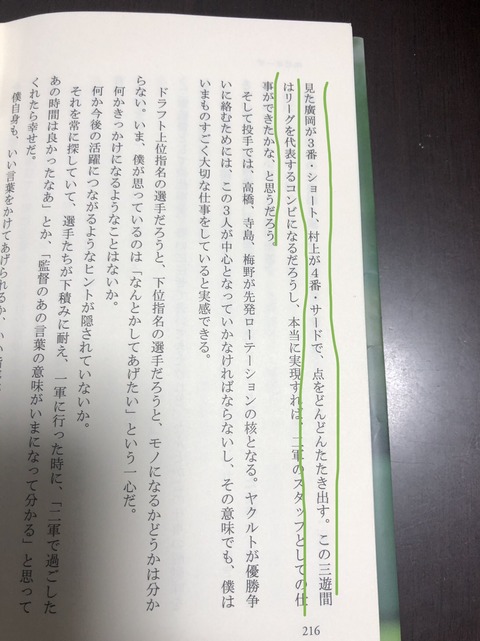 見た廣岡が3番・ショート、村上が4番・サードで、点をどんどんたたき出す。この三遊間
はリーグを代表するコンビになるだろうし、本当に実現すれば、二軍のスタッフとしての仕
事ができたかな、と思うだろう。
そして投手では、高橋、寺島、梅野が先発ローテーションの核となる。ヤクルトが優勝争
いに絡むためには、この3人が中心となっていかなければならないし、その意味でも、僕は
いまものすごく大切な仕事をしていると実感できる。
ドラフト上位指名の選手だろうと、下位指名の選手だろうと、モノになるかどうかは分か
らない。いま、僕が思っているのは「なんとかしてあげたい」という一心だ。
何かきっかけになるようなことはないか。
何か今後の活躍につながるようなヒントが隠されていないか。
それを常に探していて、選手たちが下積みに耐え、一軍に行った時に、「二軍で過ごした
あの時間は良かったなあ」とか、「監督のあの言葉の意味がいまになって分かる」と思って
くれたら幸せだ。
僕自身も、いい言葉をかけてあげられるか、いい
216